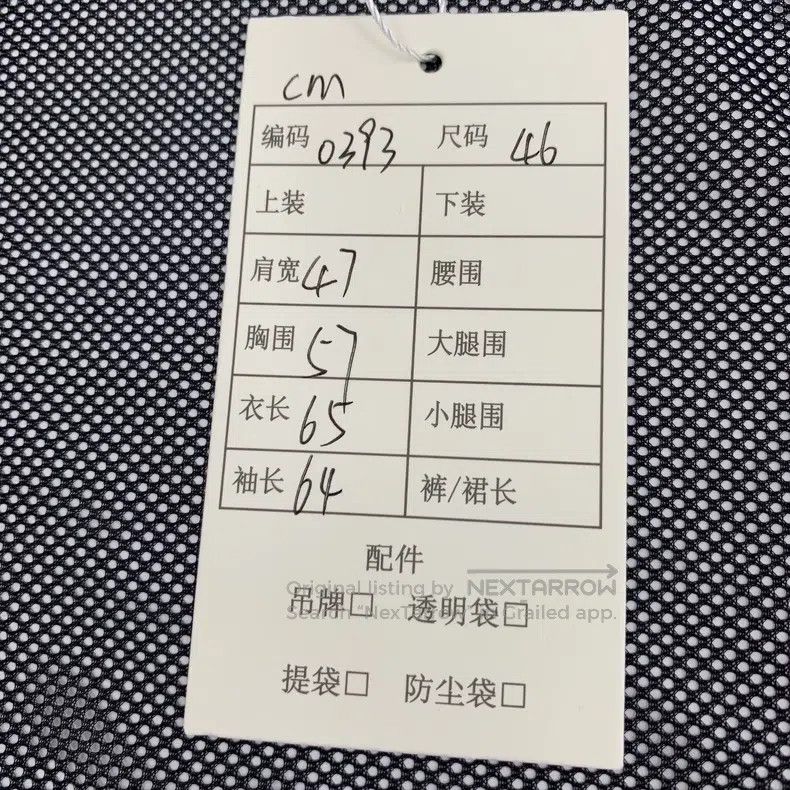 cm
编码 0393 尺码 46
上装 下装
肩宽 47 腰围
胸围 57 大腿围
衣长 65 小腿围
袖长 64 裤/裙长
配件
Original listing by NEXTARROW
吊牌□ 透明袋□
提袋□ 防尘袋□